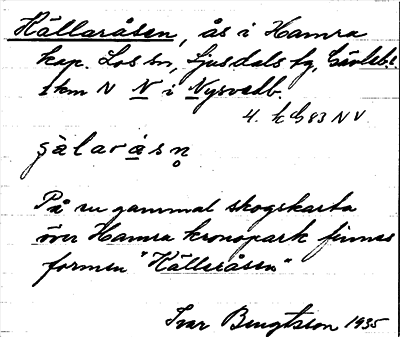 Hällaråsen, ås i Hamra
kap. Los sn, Ljusdals tg, Gävleb. l.
1 km N N i Nysvedb.
4. h G 83 NV
gälaråsn̥
På en gammal skogskarta
över Hamra kronopark finnes
formen "Källeråsen"
Ivar Bengtsson 1935